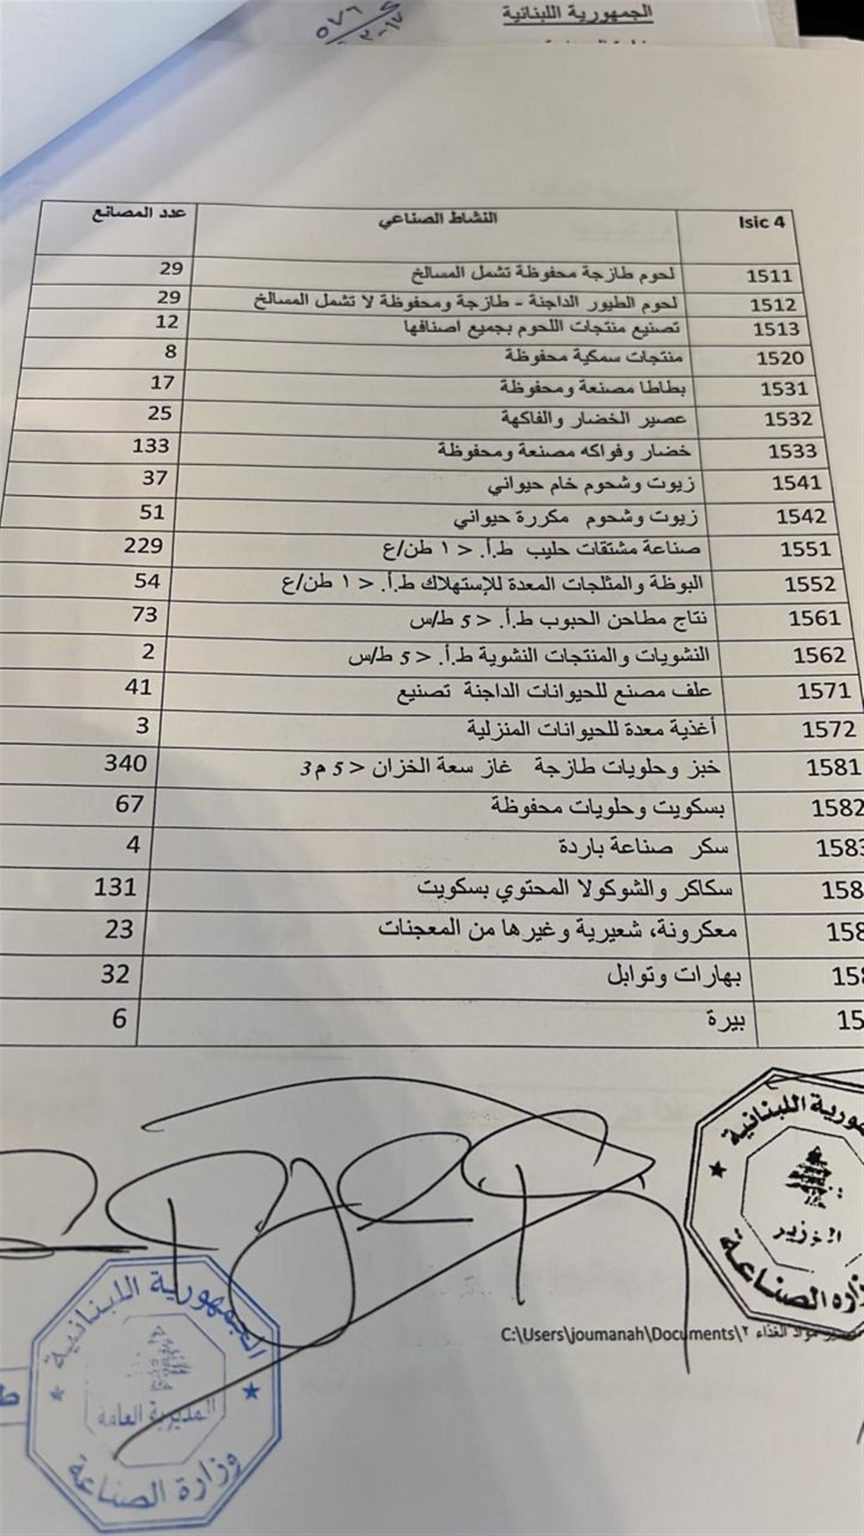 الجمهورية اللبنانية
٥٧٦
Isic 4 النشاط الصناعي عدد المصانع
1511 لحوم طازجة محفوظة تشمل المسالخ 29
1512 لحوم الطيور الداجنة - طازجة ومحفوظة لا تشمل المسالخ 29
1513 تصنيع منتجات اللحوم بجميع اصنافها 12
1520 منتجات سمكية محفوظة 8
1531 بطاطا مصنعة ومحفوظة 17
1532 عصير الخضار والفاكهة 25
1533 خضار وفواكه مصنعة ومحفوظة 133
1541 زيوت وشحوم خام حيواني 37
1542 زيوت وشحوم مكررة حيواني 51
1551 صناعة مشتقات حليب ط.أ. < ١ طن/ع 229
1552 البوظة والمثلجات المعدة للإستهلاك ط.أ. < ١ طن/ع 54
1561 نتاج مطاحن الحبوب ط.أ. < 5 ط/س 73
1562 النشويات والمنتجات النشوية ط.أ. < 5 ط/س 2
1571 علف مصنع للحيوانات الداجنة تصنيع 41
1572 أغذية معدة للحيوانات المنزلية 3
1581 خبز وحلويات طازجة غاز سعة الخزان < 5 م3 340
1582 بسكويت وحلويات محفوظة 67
1583 سكر صناعة باردة 4
158 سكاكر والشوكولا المحتوي بسكويت 131
158 معكرونة، شعيرية وغيرها من المعجنات 23
15 بهارات وتوابل 32
15 بيرة 6
الجمهورية اللبنانية
الوزير
وزارة الصناعة
C:\Users\joumanah\Documents\٢ مواد الغذاء
الجمهورية اللبنانية
المديرية العامة
وزارة الصناعة